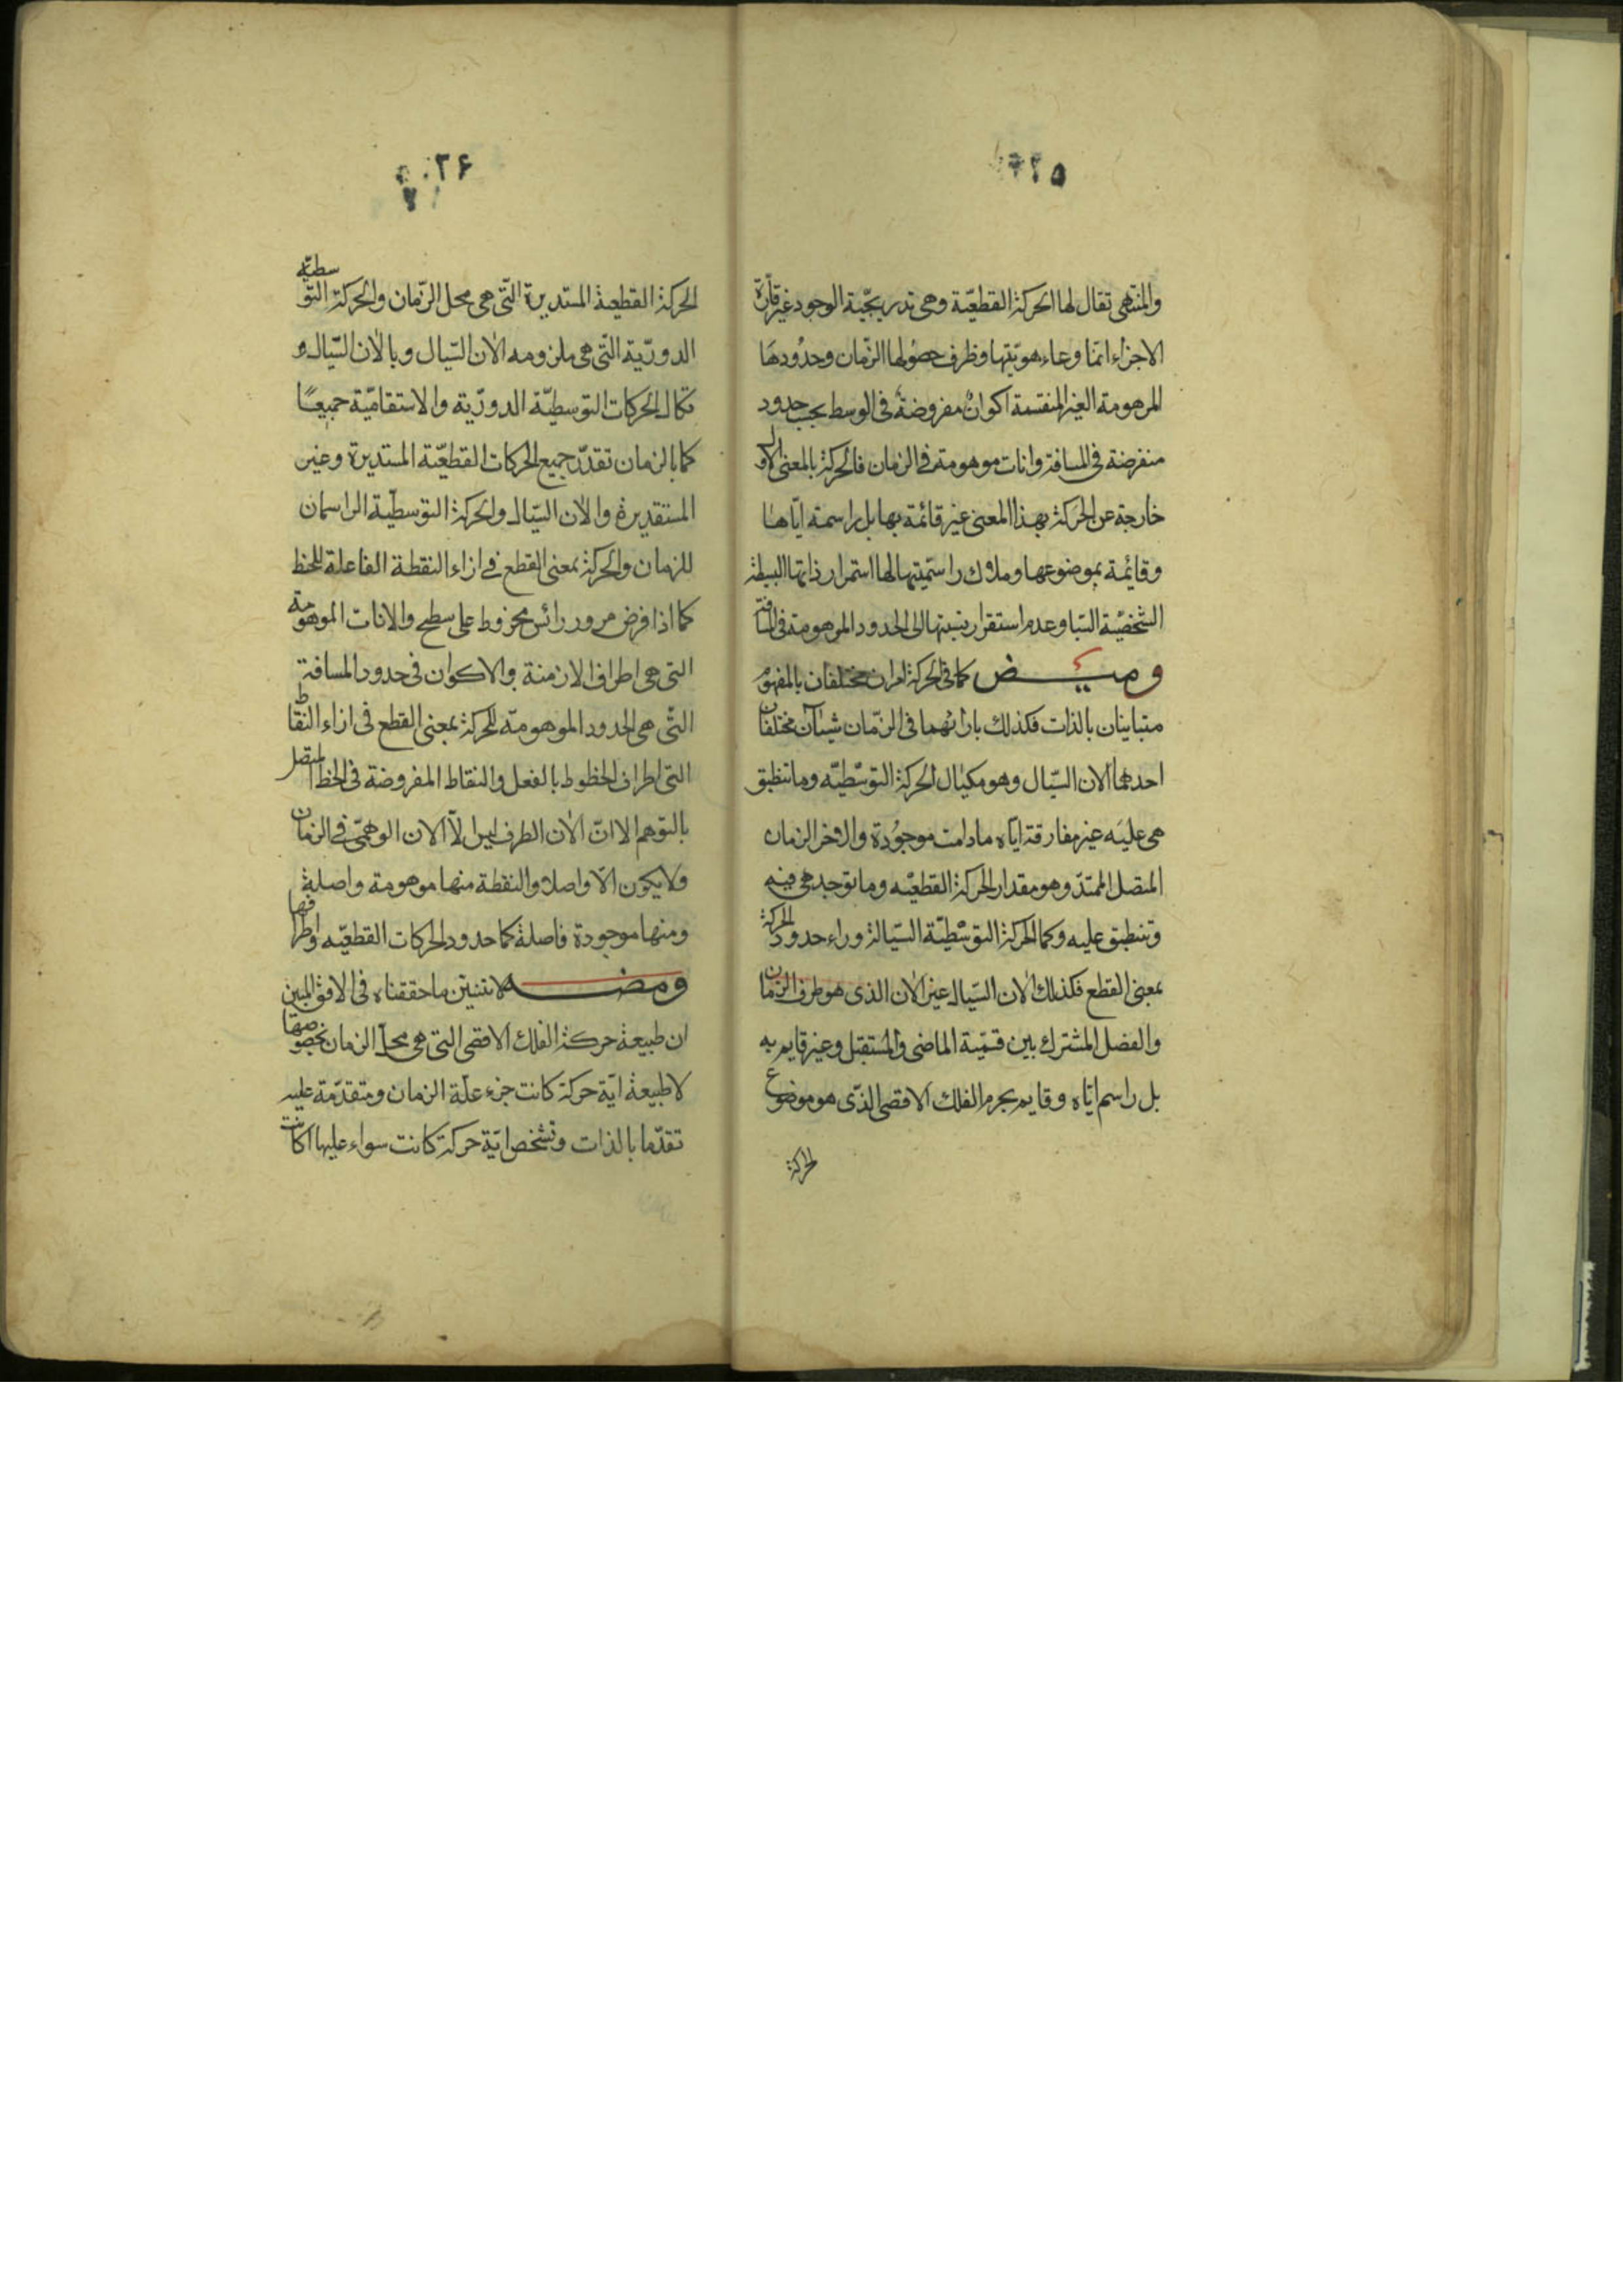 ٢٥
والمنتهى تقال لها الحركة القطعيّة وهى تدريجيّة الوجود غير قارّة
الاجزاء انما وعاء هويّتها وظرف حصولها الزّمان وحدُودها
الموهومة الغير المنقسمة اكوانٌ مفروضةٌ فى الوسط بحسب حدود
منفرضة فى المسافة وانات موهومة فى الزمان فالحركة بالمعنى الاول
خارجة عن الحركة بهذا المعنى غير قائمة بها بل راسمة ايّاها
وقائمة بموضوعها وملاك راسميّتها لها استمرار ذاتها البسيطة
الشخصيّة السّيا وعدم استقرار نسبتها الى الحدود الموهومة فى المسافة
وميــض كما فى الحركة امران مختلفان بالمفهوم
متباينان بالذات فكذلك بازائهما فى الزّمان شيئان مختلفان
احدهما الان السّيال وهو مكيال الحركة التوسّطيّه وما تنطبق
هى عليه غير مفارقة ايّاه ما دامت موجُودة والاخر الزمان
المتصل الممتدّ وهو مقدار الحركة القطعيّه وما توجد هى فيه
وتنطبق عليه وكما الحركة التوسّطيّة السّيالة وراء حدود الحركة
بمعنى القطع فكذلك الان السّيال غير الان الذى هو طرف الزمان
والفصل المشترك بين قسميّة الماضى والمستقبل وغير قايم به
بل راسم ايّاه وقايم بجرم الفلك الاقصى الذّى هو موضوع
الحركة
٢۶
الحركة القطعية المستديرة التّى هى محل الزّمان والحركة التوسطيّه
الدوريّة التّى هى ملزومه الان السّيال وبالان السّيال و
تكال الحركات التوسطيّة الدوريّة والاستقاميّة جميعًا
كما بالزمان تقدّر جميع الحركات القطعيّة المستديرة وغير
المستقديرة والان السّيال والحركة التوسطيّة الراسمان
للزمان والحركة بمعنى القطع فى ازاء النقطة الفاعلة للخط
كما اذا فرض مرور رائس مخروط على سطح والانات الموهومة
التى هى اطراف الازمنة والاكوان فى حدود المسافة
التّى هى الحدود الموهومة للحركة بمعنى القطع فى ازاء النقاط
التى اطراف الخطوط بالفعل والنقاط المفروضة فى الخط المتصل
بالتوهم الا انّ الان الطرف ليس الّا الان الوهمّى فى الزمان
ولا يكون الّا واصلا والنقطة منها موهومة واصلة
ومنها موجودة فاصلة كما حدود الحركات القطعيّه واطرافها
ومضــه لا تنسين ما حققناه فى الافق المبين
ان طبيعة حركة الفلك الاقصى التى هى محلّ الزمان بخصوصها
لا طبيعة ايّة حركة كانت جزء علّة الزمان ومتقدّمة عليه
تقدّما بالذات وتشخص ايّة حركة كانت سواء عليها اكانت